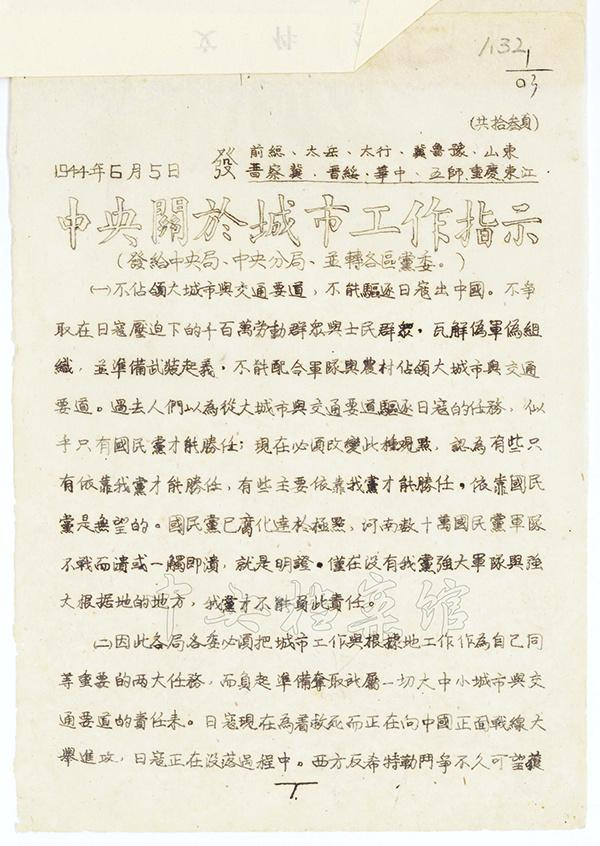 抄文
1132
1
(共拾叁頁)
1944年6月5日 發
前總、太岳、太行、冀魯豫、山東
晋察冀、晋綏、華中、五師、重慶東江
中央關於城市工作指示
(發給中央局、中央分局、並轉各區黨委。)
㈠不佔領大城市與交通要道,不能驅逐日寇出中國。不爭
取在日寇壓迫下的千百萬勞動群衆與士民群衆,瓦解偽軍偽組
織,並準備武装起義,不能配合軍隊與農村佔領大城市與交通
要道。過去人們以為從大城市與交通要道驅逐日寇的任務,似
乎只有國民黨才能勝任;現在必須改變此種观點,認為有些只
有依靠我黨才能勝任,有些主要依靠我黨才能勝任,依靠國民
黨是無望的。國民黨已腐化達於極點,河南数十萬國民黨軍隊
不戰而潰或一觸即潰,就是明證。僅在没有我黨強大軍隊與強
大根據地的地方,我黨才不能負此責任。
中央档案馆
㈡因此各局各委必須把城市工作與根據地工作作為自己同
等重要的两大任務,而負起準備奪取所屬一切大中小城市與交
通要道的責任来。日寇現在為着救死而正在向中國正面戰線大
舉進攻,日寇正在没落過程中。西方反希特勒鬥爭不久可望獲
1